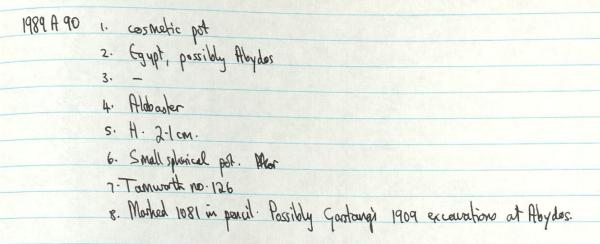 1989 A 90 1. cosmetic pot
2. Egypt, possibly Abydos
3. -
4. Alabaster
5. H. 2.1cm.
6. Small spherical pot.
7. Tamworth no. 126
8. Marked 1081 in pencil. Possibly Garstang's 1909 excavations at Abydos.